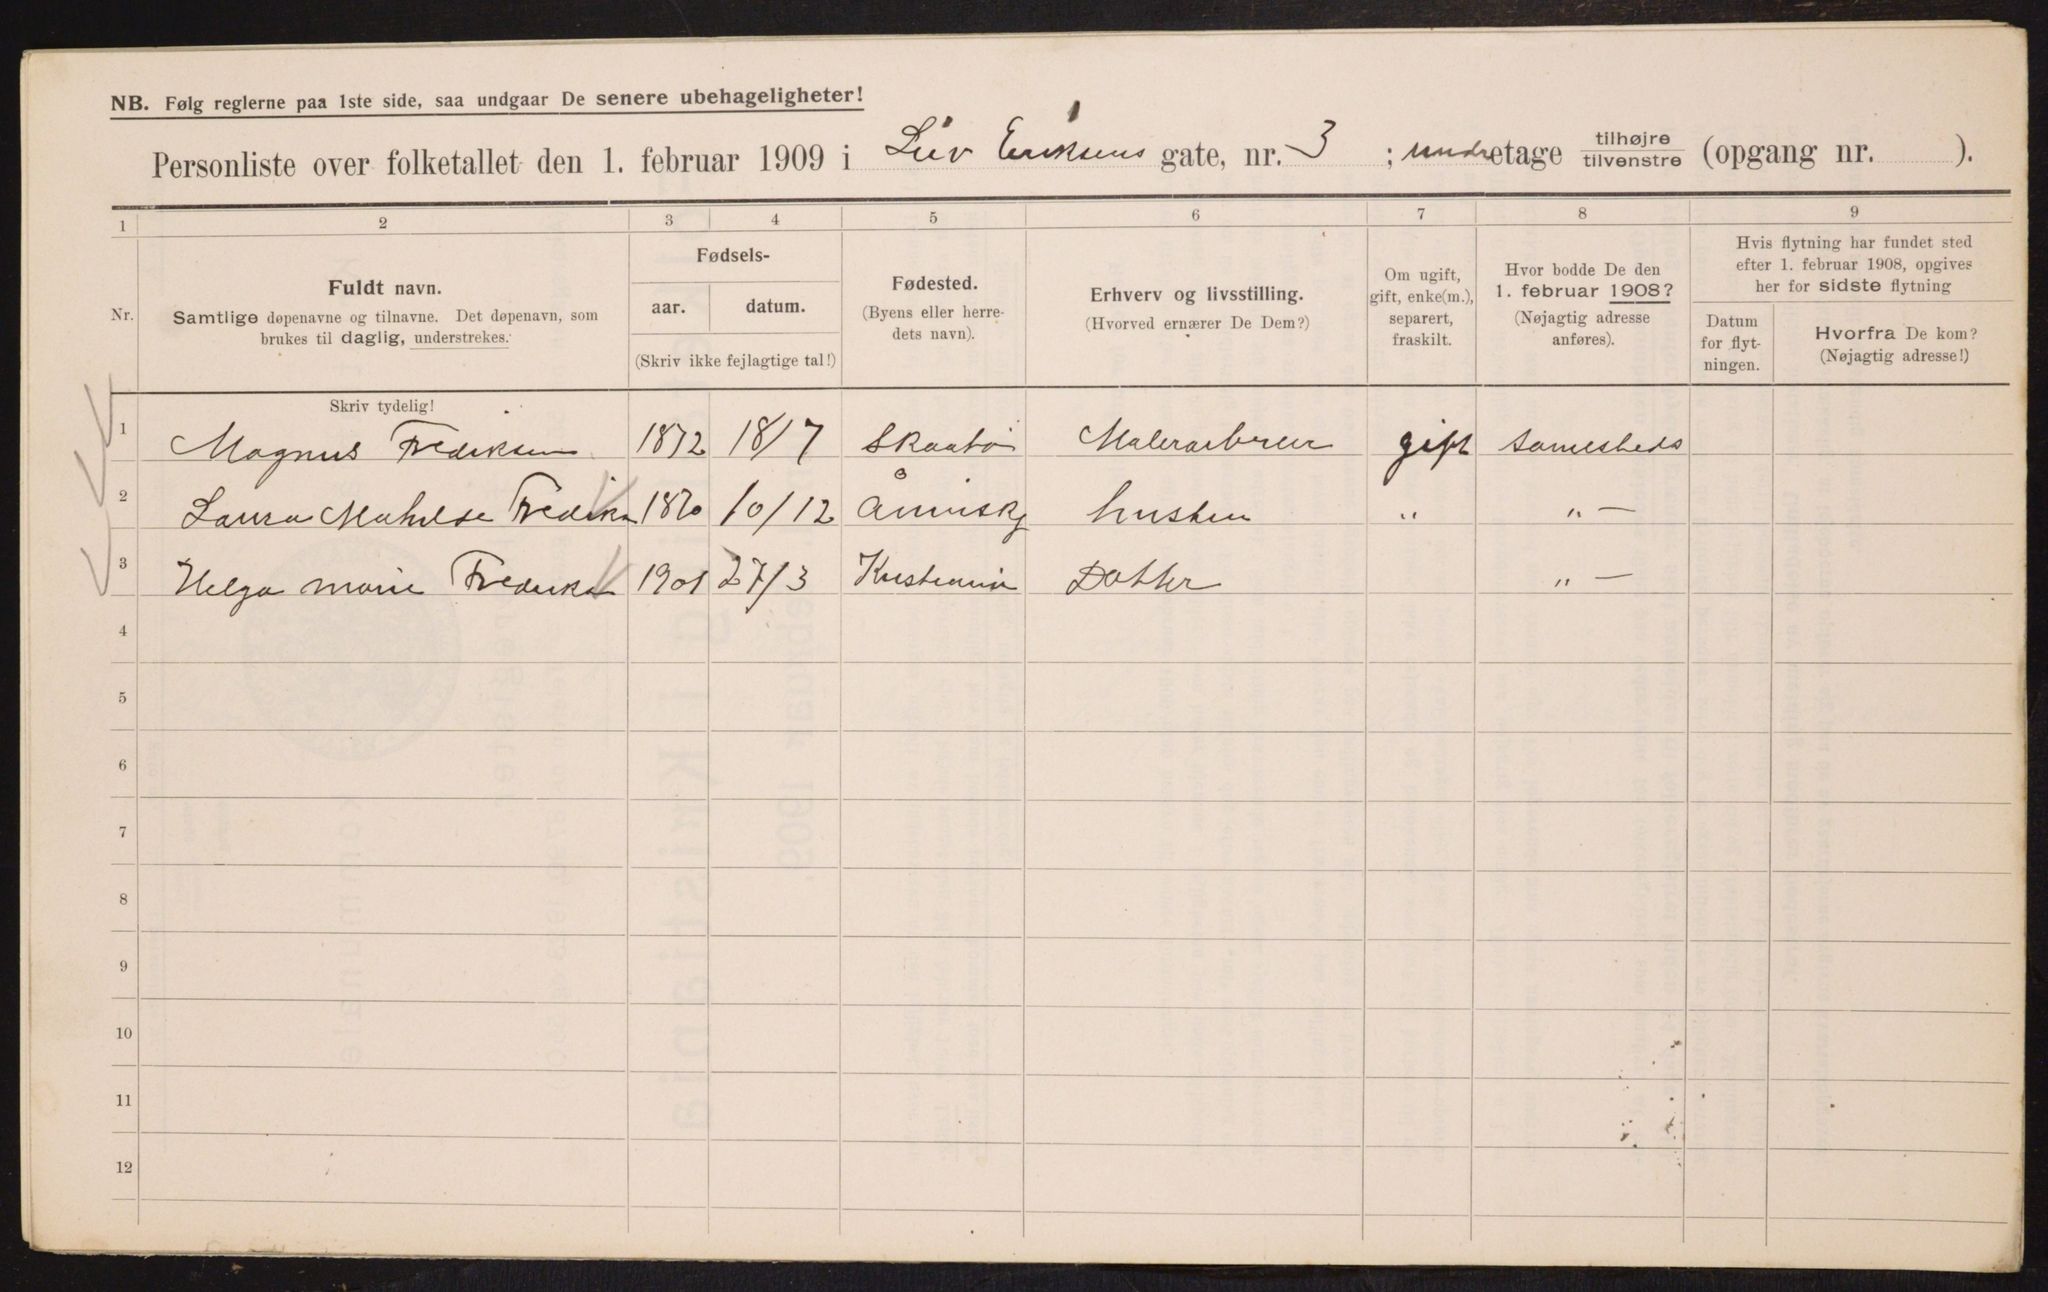 NB. Følg reglerne paa 1ste side, saa undgaar De senere ubehageligheter!
Personliste over folketallet den 1. februar 1909 i Leiv Eriksens gate, nr. 3 ; undr etage tilhøjre tilvenstre (opgang nr. ).
1 2 3 4 5 6 7 8 9
Nr.
Fuldt navn.
Samtlige døpenavne og tilnavne. Det døpenavn, som
brukes til daglig, understrekes.
Fødsels-
aar. datum.
(Skriv ikke fejlagtige tal!)
Fødested.
(Byens eller herre-
dets navn).
Erhverv og livsstilling.
(Hvorved ernærer De Dem?)
Om ugift,
gift, enke(m.),
separert,
fraskilt.
Hvor bodde De den
1. februar 1908?
(Nøjagtig adresse
anføres).
Hvis flytning har fundet sted
efter 1. februar 1908, opgives
her for sidste flytning
Datum
for flyt-
ningen.
Hvorfra De kom?
(Nøjagtig adresse!)
Skriv tydelig!
1 Magnus Fredriksen 1872 18/7 Skaatø gift samesteds
2 Laura Mathilde 1870 10/12 " " —
3 Helga Marie 1901 27/3 Kristiania Datter " —
4
5
6
7
8
9
10
11
12